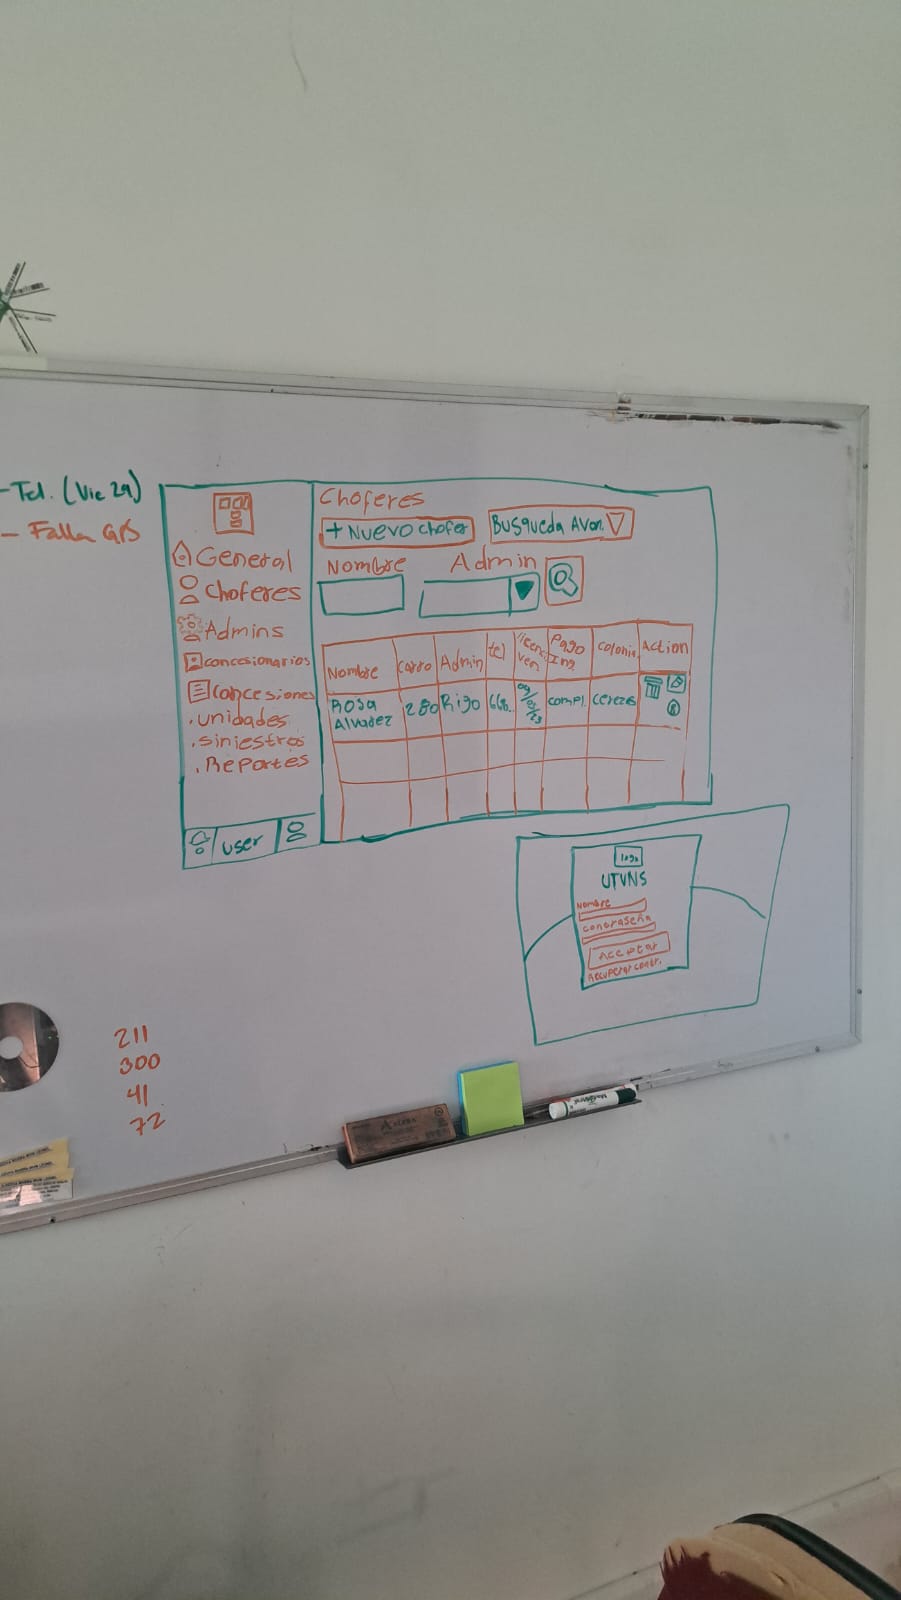 - Tel. (Vie 29)
- Falla GPS
General
Choferes
Admins
concesionarios
concesiones
. unidades
. siniestros
. Reportes
user
Choferes
+ Nuevo chofer
Busqueda Avan.
Nombre
Admin
Nombre
carro
Admin
tel
licenc. ven
Pago Ing
colonia
Action
Rosa
Alvarez
280
Rigo
668..
compl.
cerezos
logo
UTVNS
Nombre
contraseña
Aceptar
Recuperar contr.
211
300
41
72